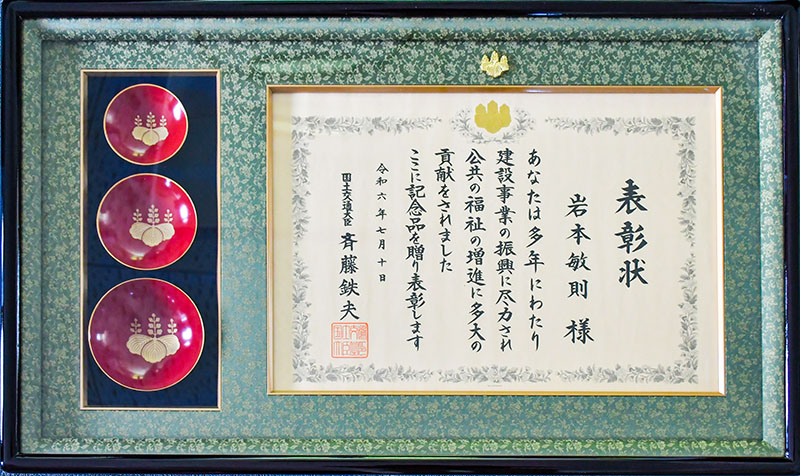 表彰状
岩本敏則 様
あなたは多年にわたり
建設事業の振興に尽力され
公共の福祉の増進に多大の
貢献をされました
ここに記念品を贈り表彰します
令和六年七月十日
国土交通大臣 斉藤鉄夫